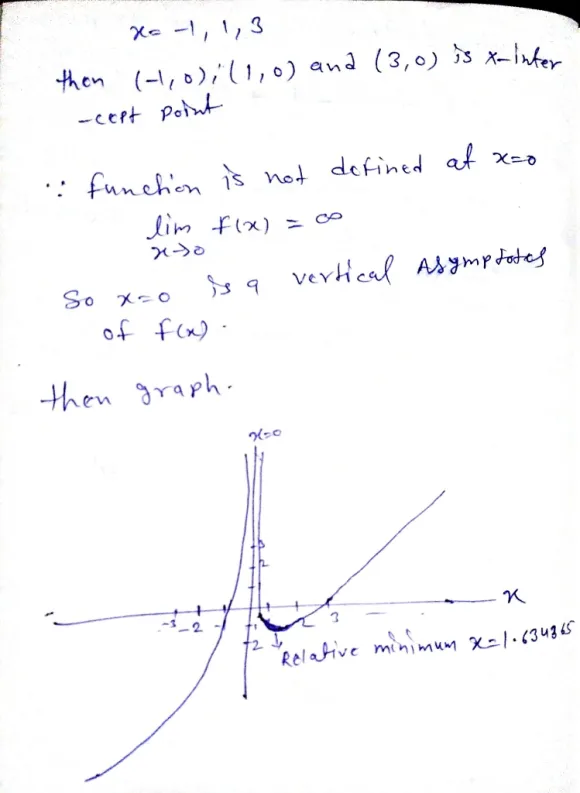 x = -1, 1, 3
then (-1, 0), (1, 0) and (3, 0) is x-inter
-cept point
∵ function is not defined at x=0
lim f(x) = ∞
x→0
So x=0 is a vertical Asymptotes
of f(x).
then graph.
x=0
3
2
-3 -2 3 x
2
Relative minimum x=1.634365